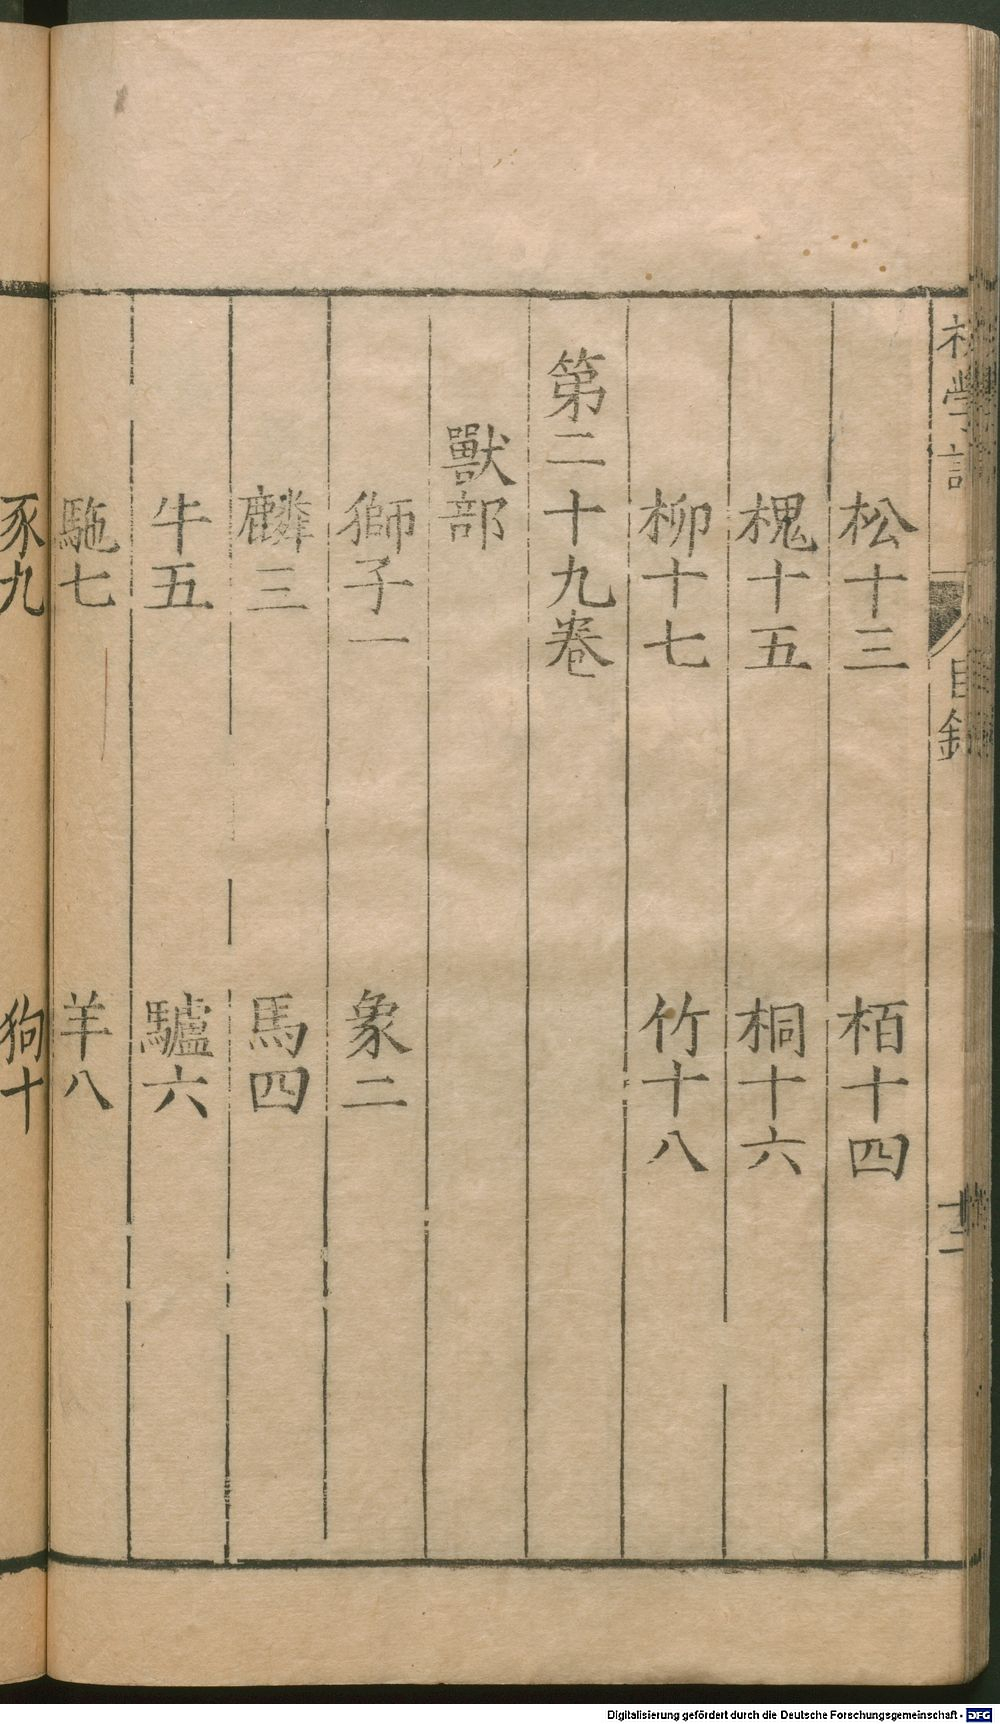 初學記 目録 十二
松十三 栢十四
槐十五 桐十六
柳十七 竹十八
第二十九卷
獸部
獅子一 象二
麟三 馬四
牛五 驢六
駞七 羊八
豕九 狗十
Digitalisierung gefördert durch die Deutsche Forschungsgemeinschaft - DFG